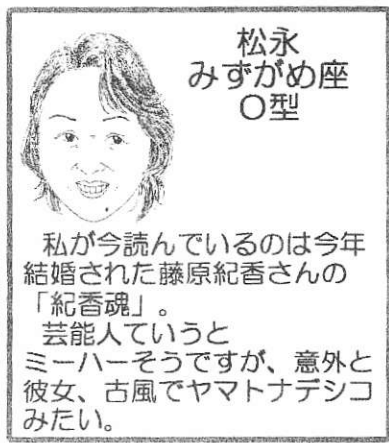 松永
みずがめ座
O型
私が今読んでいるのは今年
結婚された藤原紀香さんの
「紀香魂」。
芸能人ていうと
ミーハーそうですが、意外と
彼女、古風でヤマトナデシコ
みたい。